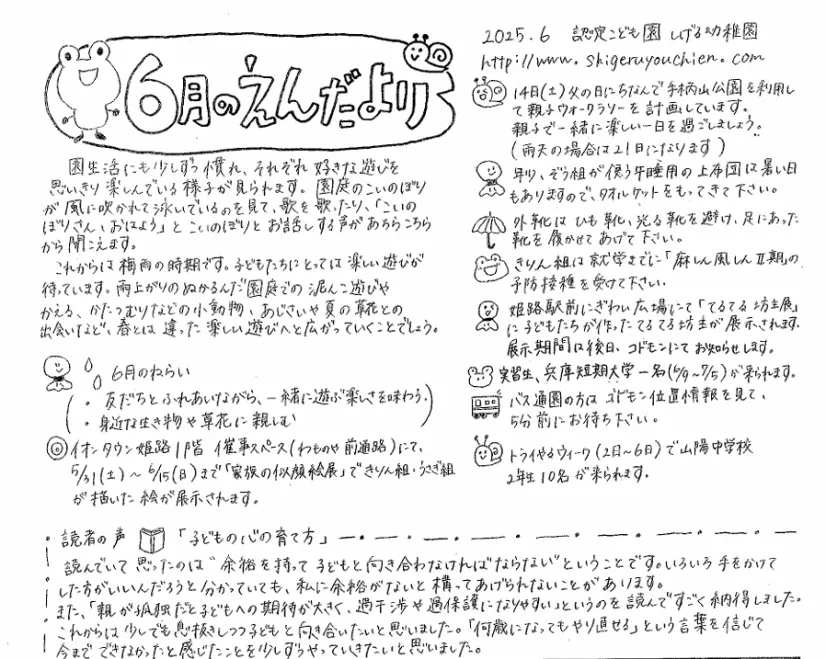 6月のえんだより
園生活にも少しずつ慣れ、それぞれ好きな遊びを
思いきり楽しんでいる様子が見られます。園庭のこいのぼり
が風に吹かれて泳いでいるのを見て、歌を歌ったり、「こいの
ぼりさん、おはよう」とこいのぼりとお話しする声があちらこちら
から聞こえます。
これからは梅雨の時期です。子どもたちにとっては楽しい遊びが
待っています。雨上がりのぬかるんだ園庭での泥んこ遊びや
かえる、かたつむりなどの小動物、あじさいや夏の草花との
出会いなど、春とは違った楽しい遊びへと広がっていくことでしょう。
6月のねらい
・友だちとふれあいながら、一緒に遊ぶ楽しさを味わう.
・身近な生き物や草花に親しむ
◎イオンタウン姫路1階 催事スペース(わものや前通路)にて、
5/31(土)～6/15(日)まで「家族の似顔絵展」できりん組・うさぎ組
が描いた絵が展示されます。
2025.6 認定こども園 しげる幼稚園
http://www.shigeruyouchien.com
14日(土)父の日にちなんで手柄山公園を利用し
て親子ウォークラリーを計画しています。
親子で一緒に楽しい一日を過ごしましょう。
(雨天の場合は21日になります)
早り、ぞう組が使う午睡用の上布団は暑い日
もありますので、タオルケットをもってきて下さい。
外靴はひも靴、光る靴を避け、足にあった
靴を履かせてあげて下さい。
きりん組は就学までに「麻しん風しんⅡ期」の
予防接種を受けて下さい.
姫路駅前にぎわい広場にて「てるてる坊主展」
に子どもたちが作ったてるてる坊主が展示されます.
展示期間は後日、コドモンにてお知らせします。
実習生、兵庫短期大学一名(6/9～7/5)が来られます.
バス通園の方はコドモン位置情報を見て、
5分前にお待ち下さい。
トライやるウィーク(2日～6日)で山陽中学校
2年生10名が来られます.
読者の声 「子どもの心の育て方」
読んでいて思ったのは“余裕を持って子どもと向き合わなければならない”ということです。いろいろ手をかけて
した方がいいんだろうと分かっていても、私に余裕がないと構ってあげられないことがあります。
また、「親が孤独だと子どもへの期待が大きく、過干渉や過保護になりやすい」というのを読んですごく納得しました。
これからは少しでも息抜きしつつ子どもと向き合いたいと思いました。「何歳になってもやり直せる」という言葉を信じて
今までできなかったと感じたことを少しずつやっていきたいと思いました。